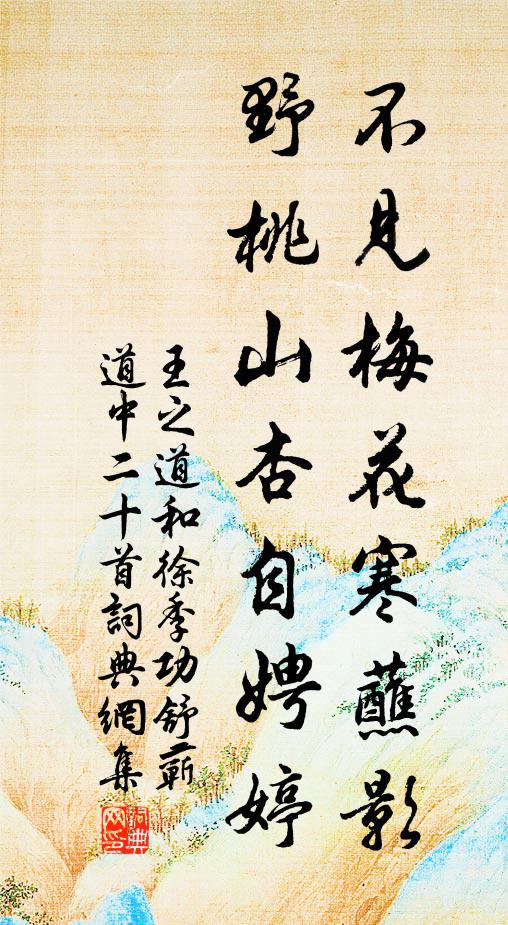 不見梅花寒蘸影
野桃山杏自娉婷
王之道和徐季功舒蘄
道中二十首詞典網集
詞典
网印